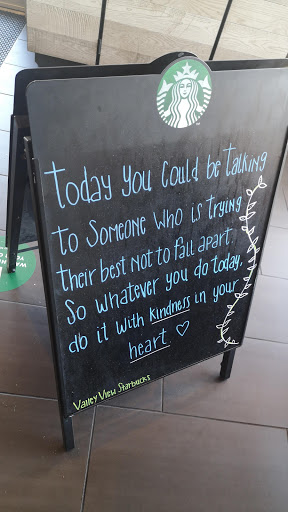 Today you could be talking
to someone who is trying
their best not to fall apart.
So whatever you do today,
do it with kindness in your
heart. ♡
Valley View Starbucks